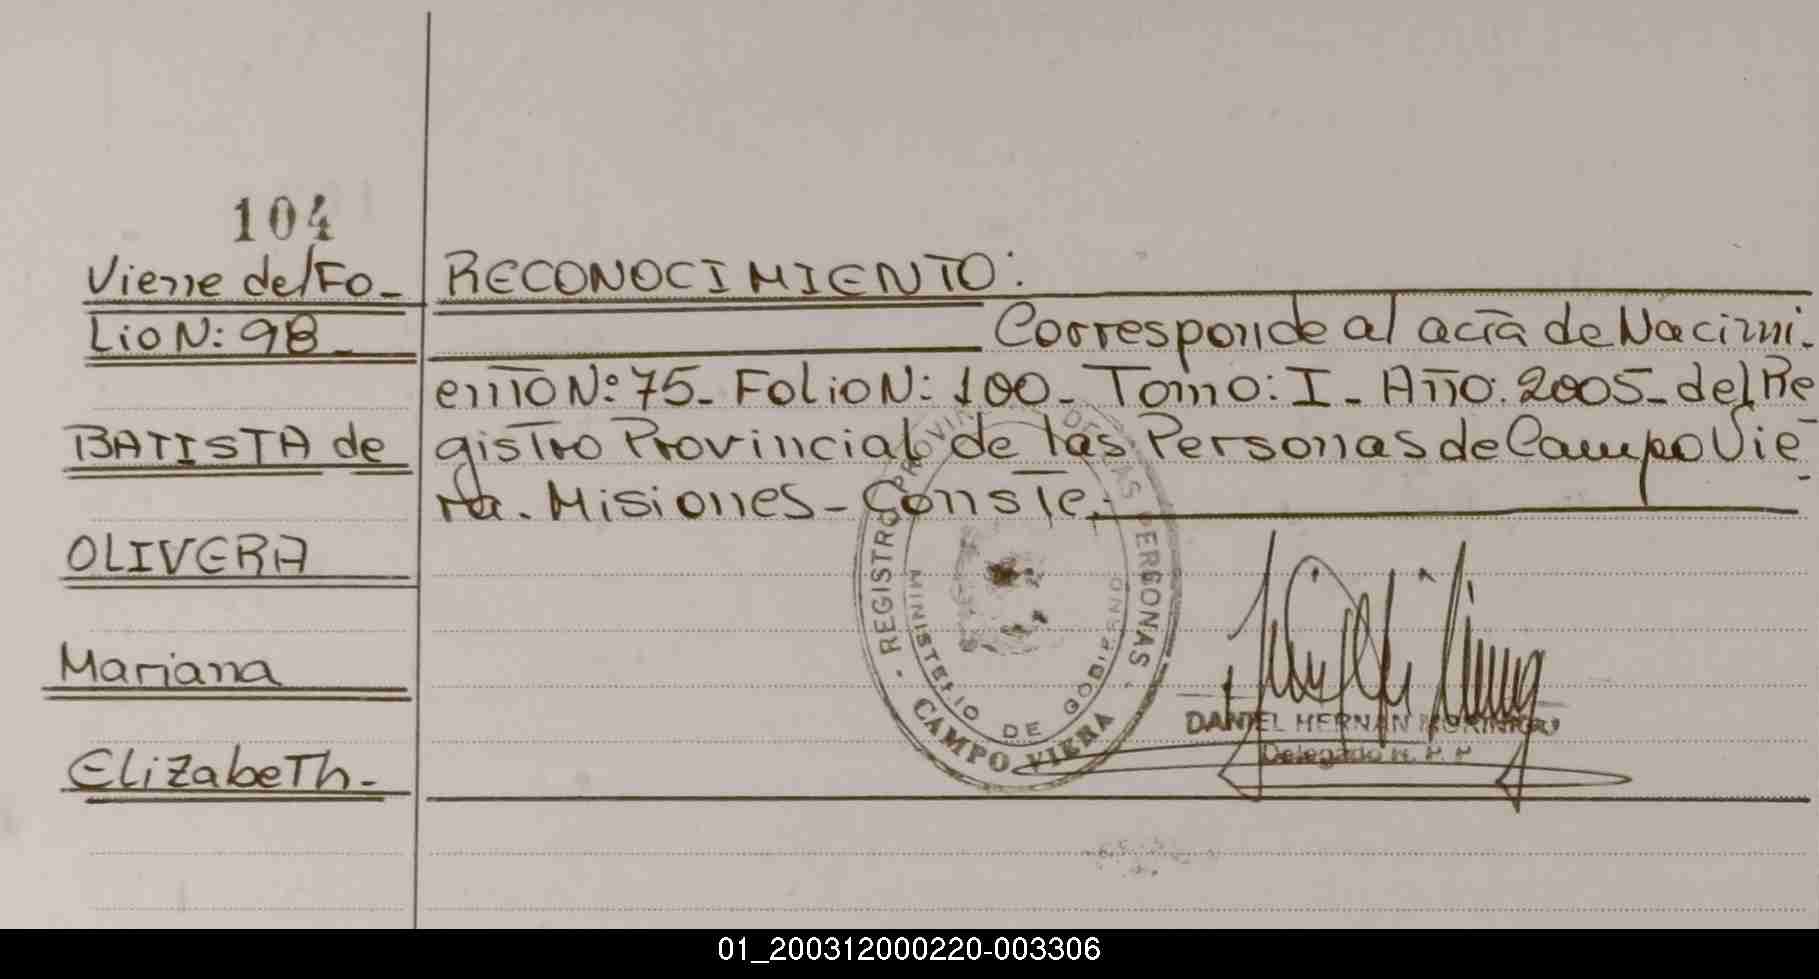 104
Viene del Fo_
Lio N: 98_
BATISTA de
OLIVERA
Mariana
Elizabeth-
RECONOCIMIENTO:
Corresponde al acta de Nacimi-
ento Nº: 75- Folio N: 100- Tomo: I- Año: 2005- del Re
gistro Provincial de las Personas de Campo Vie-
ra. Misiones- Conste.
- REGISTRO PROVIN DE LAS PERSONAS -
MINISTERIO DE GOBIERNO
CAMPO VIERA
DANIEL HERNAN
Delegado R. P. P
01_200312000220-003306